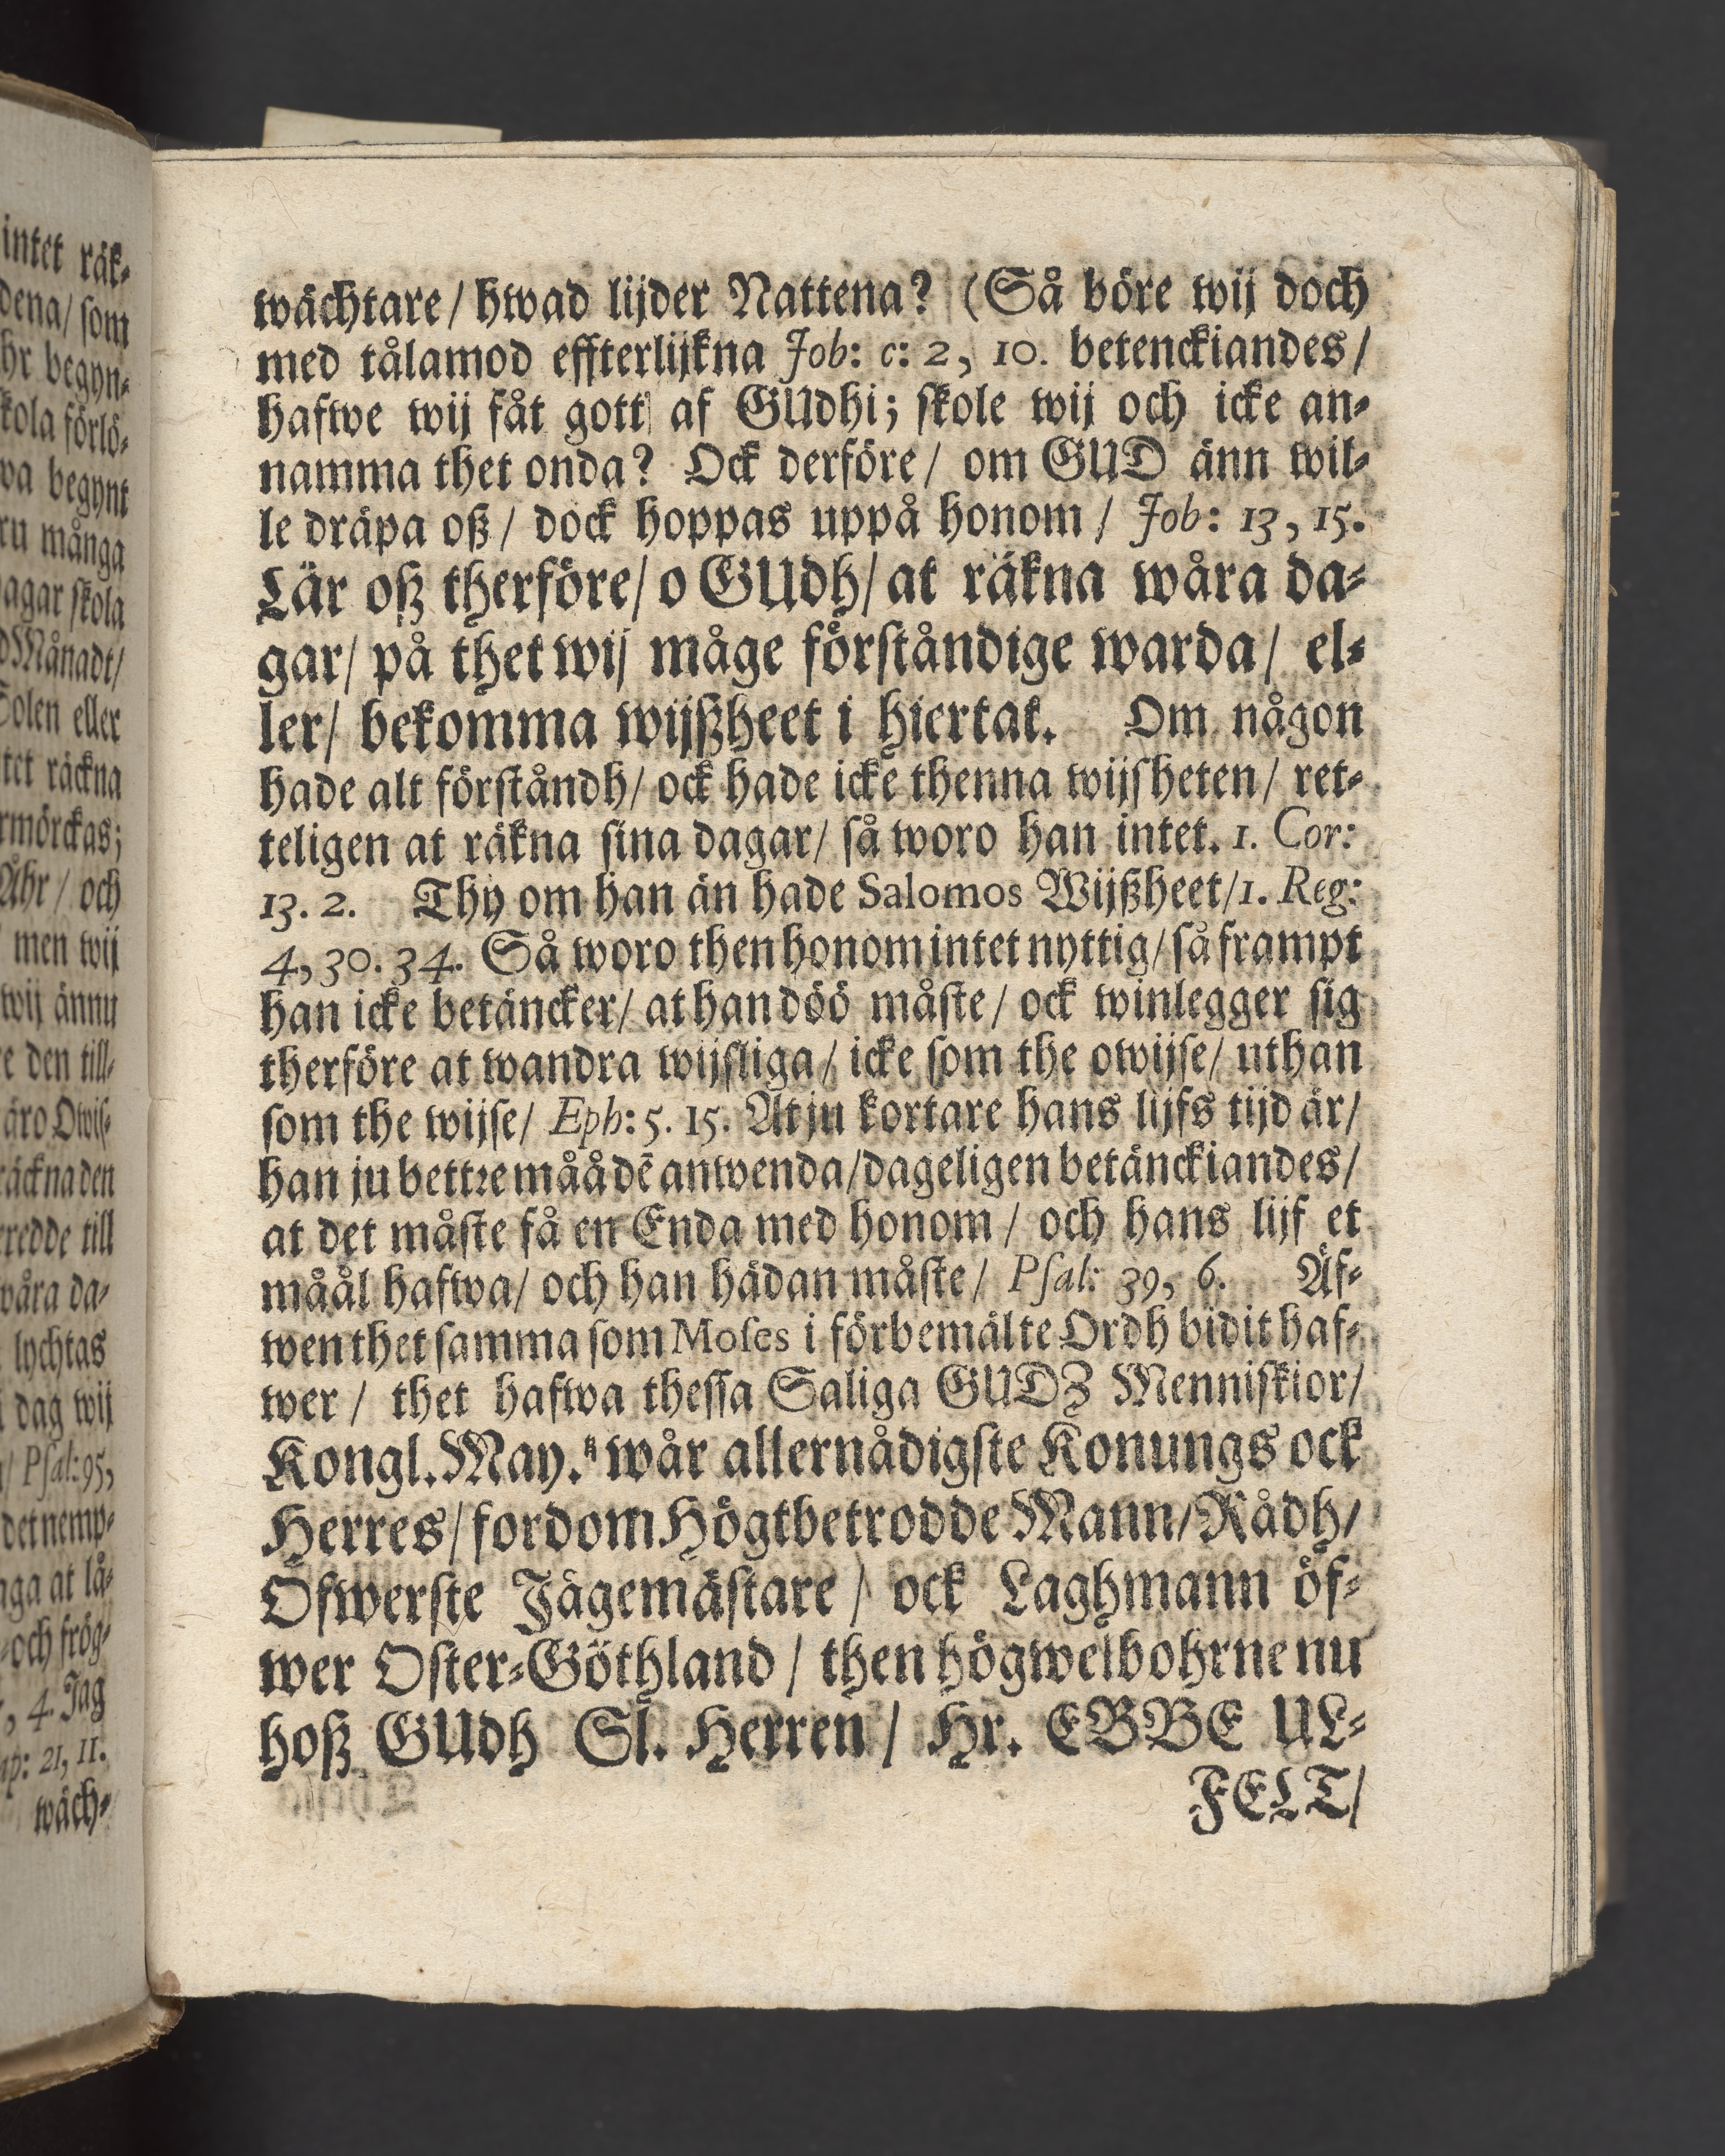 wächtare / hwad lijder Nattena? (Så böre wij doch
med tålamod effterlijkna Job: c: 2, 10. betenckiandes /
hafwe wij fåt gott af GUdhi; skole wij och icke an-
namma thet onda? Ock derföre / om GUD änn wil-
le dräpa oß / dock hoppas uppå honom / Job: 13, 15.
Lär oß therföre / o GUdh / at räkna wåra da-
gar / på thet wij måge förståndige warda / el-
ler / bekomma wijßheet i hiertat. Om någon
hade alt förståndh / ock hade icke thenna wijsheten / ret-
teligen at räkna sina dagar / så woro han intet. 1. Cor:
13. 2. Thy om han än hade Salomos Wijßheet / 1. Reg:
4, 30. 34. Så woro then honom intet nyttig / så frampt
han icke betäncker / at han döö måste / ock winlegger sig
therföre at wandra wijsliga / icke som the owijse / uthan
som the wijse / Eph: 5. 15. At ju kortare hans lijfs tijd är /
han ju bettre måå dē anwenda / dageligen betänckiandes /
at det måste få en Enda med honom / och hans lijf et
måål hafwa / och han hädan måste / Psal: 39, 6. Äf-
wen thet samma som Moses i förbemälte Ordh bidit haf-
wer / thet hafwa thessa Saliga GUDZ Menniskior /
Kongl. May.tz wår allernådigste Konungs ock
Herres / fordom Högtbetrodde Mann / Rådh /
Öfwerste Jägemästare / ock Laghmann öf-
wer Öster-Göthland / then högwelbohrne nu
hoß GUdh Sl. Herren / Hr. EBBE UL-
FELT /